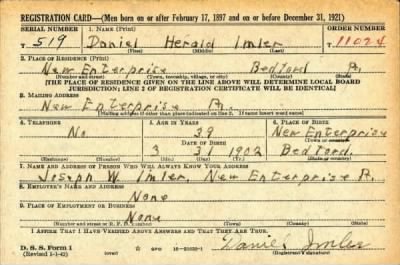 REGISTRATION CARD—(Men born on or after February 17, 1897 and on or before December 31, 1921)
SERIAL NUMBER 1. NAME (Print) ORDER NUMBER
T 519 Daniel Herald Imler 11024
(First) (Middle) (Last)
2. PLACE OF RESIDENCE (Print)
New Enterprise Bedford Pa.
(Number and street) (Town, township, village, or city) (County) (State)
[THE PLACE OF RESIDENCE GIVEN ON THE LINE ABOVE WILL DETERMINE LOCAL BOARD
JURISDICTION; LINE 2 OF REGISTRATION CERTIFICATE WILL BE IDENTICAL]
3. MAILING ADDRESS
New Enterprise Pa.
[Mailing address if other than place indicated on line 2. If same insert word same]
4. TELEPHONE 5. AGE IN YEARS 6. PLACE OF BIRTH
No. 39 New Enterprise
DATE OF BIRTH (Town or county)
3 31 1902 Bedford.
(Mo.) (Day) (Yr.) (State or country)
7. NAME AND ADDRESS OF PERSON WHO WILL ALWAYS KNOW YOUR ADDRESS
Joseph W Imler, New Enterprise Pa.
8. EMPLOYER'S NAME AND ADDRESS
None
9. PLACE OF EMPLOYMENT OR BUSINESS
None
(Number and street or R. F. D. number) (Town) (County) (State)
I AFFIRM THAT I HAVE VERIFIED ABOVE ANSWERS AND THAT THEY ARE TRUE.
D. S. S. Form 1
(Revised 1-1-42) (over) GPO 16-21630-1 Daniel Imler
(Registrant's signature)